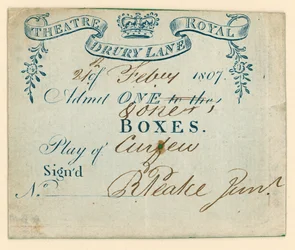 THEATRE ROYAL
DRURY LANE
Feby 1807
Admit ONE to the
BOXES.
Play of Curfew
Sign'd
No. R Peake Junr.